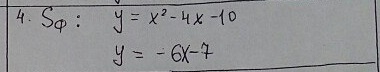 4. Sф: y = x² - 4x - 10
y = - 6x - 7